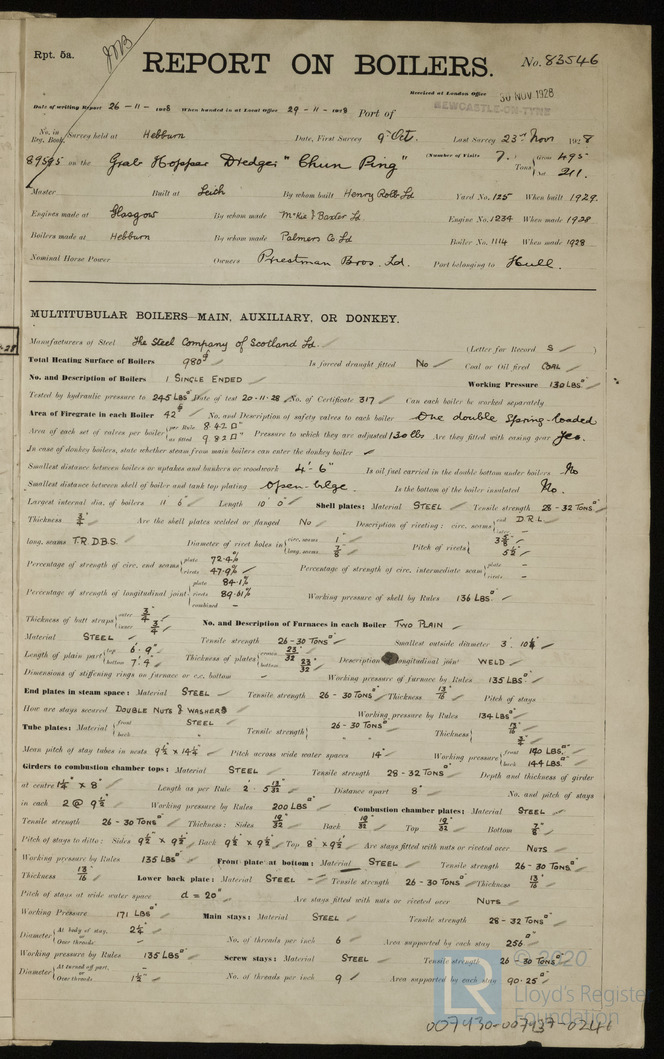 Rpt. 5a.
REPORT ON BOILERS.
No. 83546
Received at London Office 30 NOV 1928
Date of writing Report 26-11-1928 When handed in at Local Office 29-11-1928 Port of NEWCASTLE-ON-TYNE
No. in Reg. Book. Survey held at Hebburn Date, First Survey 9th Oct. Last Survey 23rd Nov 1928
89595 on the Grab Hopper Dredger "Chun Ping" (Number of Visits 7.) Tons Gross 495 Net 211.
Master Built at Leith By whom built Henry Robb Ld Yard No. 125 When built 1929.
Engines made at Glasgow By whom made McKie & Baxter Ld Engine No. 1234 When made 1928
Boilers made at Hebburn By whom made Palmers Co Ld Boiler No. 1114 When made 1928
Nominal Horse Power Owners Priestman Bros. Ld. Port belonging to Hull.
MULTITUBULAR BOILERS—MAIN, AUXILIARY, OR DONKEY.
Manufacturers of Steel The Steel Company of Scotland Ld. (Letter for Record S)
Total Heating Surface of Boilers 980 Is forced draught fitted No Coal or Oil fired COAL
No. and Description of Boilers 1 SINGLE ENDED Working Pressure 130 LBS
Tested by hydraulic pressure to 245 LBS Date of test 20-11-28 No. of Certificate 317 Can each boiler be worked separately
Area of Firegrate in each Boiler 42 No. and Description of safety valves to each boiler One double Spring-loaded
Area of each set of valves per boiler per Rule 8.42 as fitted 9.82 Pressure to which they are adjusted 130 lbs Are they fitted with easing gear Yes.
In case of donkey boilers, state whether steam from main boilers can enter the donkey boiler
Smallest distance between boilers or uptakes and bunkers or woodwork 4'-6" Is oil fuel carried in the double bottom under boilers No
Smallest distance between shell of boiler and tank top plating Open bilge. Is the bottom of the boiler insulated No.
Largest internal dia. of boilers 11' 6" Length 10' 0" Shell plates: Material STEEL Tensile strength 28-32 TONS
Thickness 3/4" Are the shell plates welded or flanged No Description of riveting: circ. seams end D.R.L inter. –
long. seams T.R.D.B.S. Diameter of rivet holes in circ. seams 1" long. seams 7/8" Pitch of rivets 3 3/8" 5 1/2"
Percentage of strength of circ. end seams plate 72.4% rivets 47.9% Percentage of strength of circ. intermediate seam plate – rivets –
Percentage of strength of longitudinal joint plate 84.1% rivets 89.61% combined – Working pressure of shell by Rules 136 LBS
Thickness of butt straps outer 3/4 inner 3/4 No. and Description of Furnaces in each Boiler TWO PLAIN
Material STEEL Tensile strength 26-30 TONS Smallest outside diameter 3' 10 1/4"
Length of plain part top 6' 9" bottom 7' 4" Thickness of plates crown 23/32 bottom 23/32 Description of longitudinal joint WELD
Dimensions of stiffening rings on furnace or c.c. bottom – Working pressure of furnace by Rules 135 LBS
End plates in steam space: Material STEEL Tensile strength 26-30 TONS Thickness 13/16 Pitch of stays
How are stays secured DOUBLE NUTS & WASHERS Working pressure by Rules 134 LBS
Tube plates: Material front back STEEL Tensile strength 26-30 TONS Thickness 13/16 3/4
Mean pitch of stay tubes in nests 9 1/2 x 14 1/4 Pitch across wide water spaces 14" Working pressure front 140 LBS back 144 LBS
Girders to combustion chamber tops: Material STEEL Tensile strength 28-32 TONS Depth and thickness of girder
at centre 1 1/4" x 8" Length as per Rule 2' 5 13/32 Distance apart 8" No. and pitch of stays
in each 2 @ 9 1/2 Working pressure by Rules 200 LBS Combustion chamber plates: Material STEEL
Tensile strength 26-30 TONS Thickness: Sides 19/32 Back 19/32 Top 19/32 Bottom 7/8
Pitch of stays to ditto: Sides 9 1/2 x 9 1/2 Back 9 1/2 x 9 1/2 Top 8 x 9 1/2 Are stays fitted with nuts or riveted over NUTS
Working pressure by Rules 135 LBS Front plate at bottom: Material STEEL Tensile strength 26-30 TONS
Thickness 13/16 Lower back plate: Material STEEL Tensile strength 26-30 TONS Thickness 13/16
Pitch of stays at wide water space d = 20" Are stays fitted with nuts or riveted over NUTS
Working Pressure 171 LBS Main stays: Material STEEL Tensile strength 28-32 TONS
Diameter At body of stay, 2 1/4 Over threads – No. of threads per inch 6 Area supported by each stay 256
Working pressure by Rules 135 LBS Screw stays: Material STEEL Tensile strength 26-30 TONS
Diameter At turned off part, – Over threads 1 1/2" No. of threads per inch 9 Area supported by each stay 90.25
© 2020
LR Lloyd's Register Foundation
007930-007937-0246